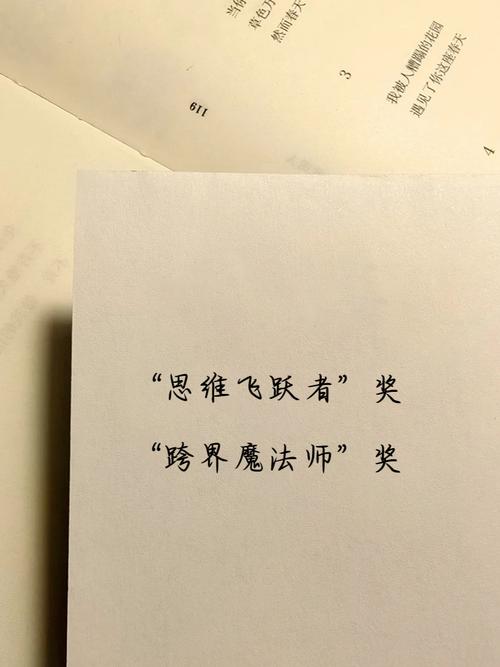 当你
草色万
然而春天
3
119
我被人糟蹋的花园
遇见了你这座春天
4
“思维飞跃者”奖
“跨界魔法师”奖